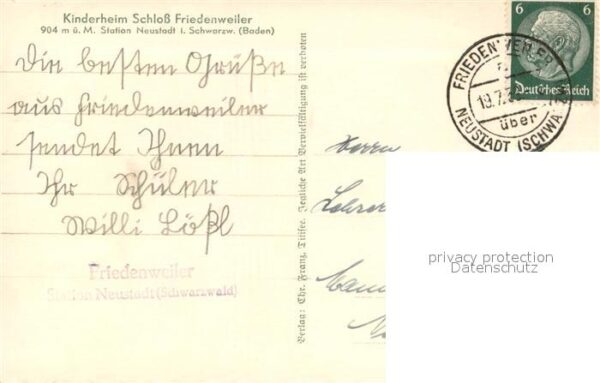 Kinderheim Schloß Friedenweiler
904 m ü. M. Station Neustadt i. Schwarzw. (Baden)
Die besten Grüße
aus Friedenweiler
sendet Ihnen
Ihr Schüler
Willi Lößl
Friedenweiler
Station Neustadt (Schwarzwald)
Verlag: Chr. Franz, Titisee. Jegliche Art Vervielfältigung ist verboten
6 6
Deutsches Reich
FRIEDENWEILER
19.7.
über
NEUSTADT (SCHWARZW
Herrn
Lehrer
privacy protection
Datenschutz